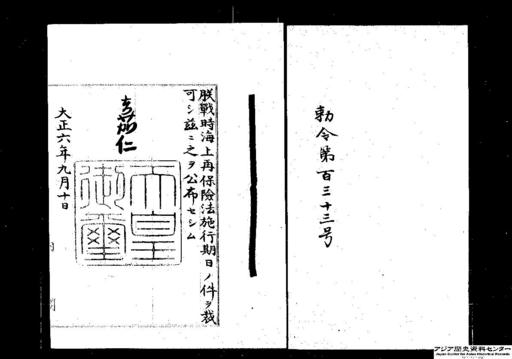 勅令第百三十三号
朕戦時海上再保險法施行期日ノ件ヲ裁
可シ茲ニ之ヲ公布セシム
嘉仁
天皇御璽
大正六年九月十日
アジア歴史資料センター
Japan Center for Asian Historical Records